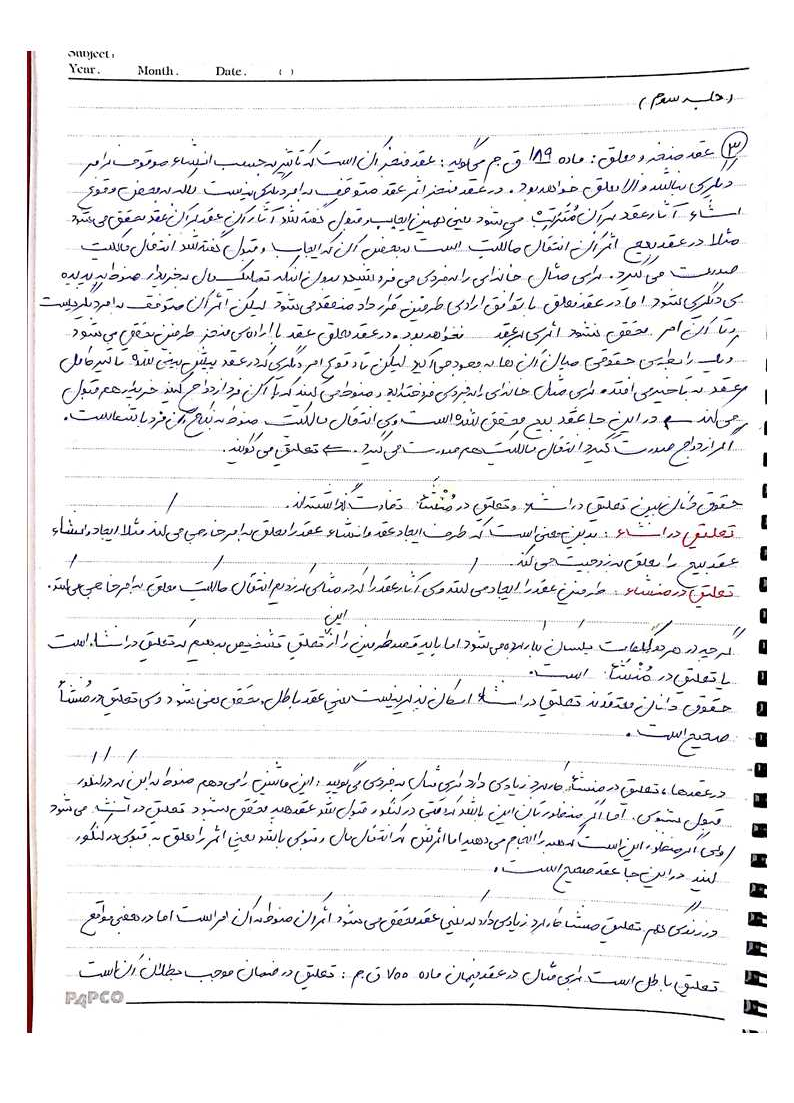 Subject:
Year. Month. Date. ( )
(جلسه سوم)
۳) عقد منجز و معلق: ماده ۱۸۹ ق.م می‌گوید: عقد منجز آن است که تاثیر به حسب انشاء موقوف به امر
دیگری نباشد والا معلق خواهد بود. در عقد منجز اثر عقد متوقف به امر دیگری نیست بلکه به محض وقوع
انشاء آثار عقد بر آن مُتَرَتِب می‌شود یعنی همین ایجاب و قبول گفته شد آثار آن عقد بر آن عقد محقق می‌شود
مثلا در عقد بیع اثر آن انتقال مالکیت است به محض آن که ایجاب و قبول گفته شد انتقال مالکیت
صورت می‌گیرد. برای مثال خانه‌ای را به فردی می‌فروشید بدون اینکه تملیک مال به خریدار منوط به پدیده
ی دیگری بشود اما در عقد معلق با توافق اراده‌ی طرفین قرارداد منعقد می‌شود لیکن اثر آن متوقف به امر دیگریست
و تا آن امر محقق نشود اثری بر عقد نخواهد بود. در عقد معلق عقد با اراده‌ی منجز طرفین محقق می‌شود
و یک رابطه‌ی حقوقی میان آن ها به وجود می‌آید لیکن تا وقوع امر دیگری که در عقد پیش بینی شده تاثیر کامل
عقد به تاخیر می‌افتد. برای مثال خانه‌ای را به فردی فروخته‌اید و منوط می‌کنید که با آن فرد ازدواج کنید خریدار هم قبول
می‌کند در این جا عقد بیع محقق شده است ولی انتقال مالکیت منوط به نکاح آن فرد با شماست.
اگر ازدواج صورت گیرد انتقال مالکیت هم صورت می‌گیرد. تعلیق می‌گویند.
حقوق دانان بین تعلیق در انشاء و تعلیق در مُنْشَأ تفاوت گذاشته‌اند.
تعلیق در انشاء: بدین معنی است که طرف ایجاد عقد و انشاء عقد را معلق به امر خارجی می‌کند مثلا ایجاد و انشاء
عقد بیع را معلق به زوجیت می‌کند.
تعلیق در منشاء: طرفین عقد را ایجاد می‌کنند ولی آثار عقد را که در مثالی که زدیم انتقال مالکیت معلق به امر خارجی می‌کنند.
گرچه در هر دو کلمات یکسان بکار برده می‌شود اما باید قصد طرفین را از این تعلیق تشخیص بدهیم که تعلیق در انشاء است
یا تعلیق در مُنْشَأ است.
حقوق دانان معتقدند تعلیق در انشاء امکان پذیر نیست یعنی عقد باطل، محقق نمی‌شود ولی تعلیق در مُنشأ
صحیح است.
در عقدها، تعلیق در منشأ کاربرد زیادی دارد برای مثال به فردی می‌گویید: این ماشین را می‌دهم منوط به این که در کنکور
قبول بشوی. اما اگر منظورتان این باشد که وقتی در کنکور قبول شد عقد هبه محقق بشود تعلیق در انشاء می‌شود
ولی اگر منظور این است که هبه را انجام می‌دهید اما اثرش که انتقال مال و قبولی باشد یعنی اثر را معلق به قبولی در کنکور
کنید در این جا عقد صحیح است.
در زندگی هم تعلیق منشأ کاربرد زیادی دارد که یعنی عقد محقق می‌شود اثر آن منوط به آن امر است اما در بعضی مواقع
تعلیق باطل است. برای مثال در عقد ضمان ماده ۷۰۰ ق.م: تعلیق در ضمان موجب بطلان آن است
PAPCO